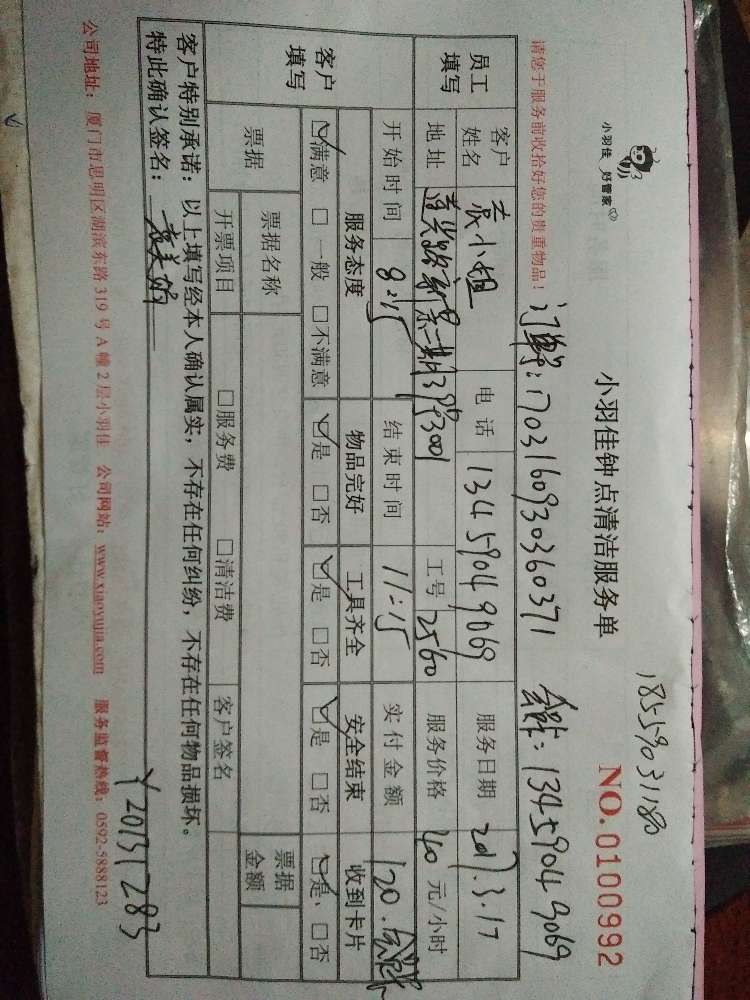 18559031180
小羽佳 好管家
小羽佳钟点清洁服务单
NO. 0100992
请您于服务前收拾好您的贵重物品！
订单号：1703160930360371 会员卡：13459049069
员工填写
客户姓名 袁小姐 电话 13459049069 服务日期 2017.3.17
地址 莲兴路新景一期39#3001 工号 2560 服务价格 40 元/小时
客户填写
开始时间 8:15 结束时间 11:15 实付金额 120.会员卡
服务态度 物品完好 工具齐全 安全结束 收到卡片
☑满意 □一般 □不满意 ☑是 □否 ☑是 □否 ☑是 □否 ☑是、□否
票据 票据名称 票据金额
开票项目 □服务费 □清洁费 客户签名
客户特别承诺：以上填写经本人确认属实，不存在任何纠纷，不存在任何物品损坏。
特此确认签名：袁美娟
Y201317283
公司地址：厦门市思明区湖滨东路319号A幢2层小羽佳 公司网站：www.xiaoyujia.com 服务监督热线：0592-5888123